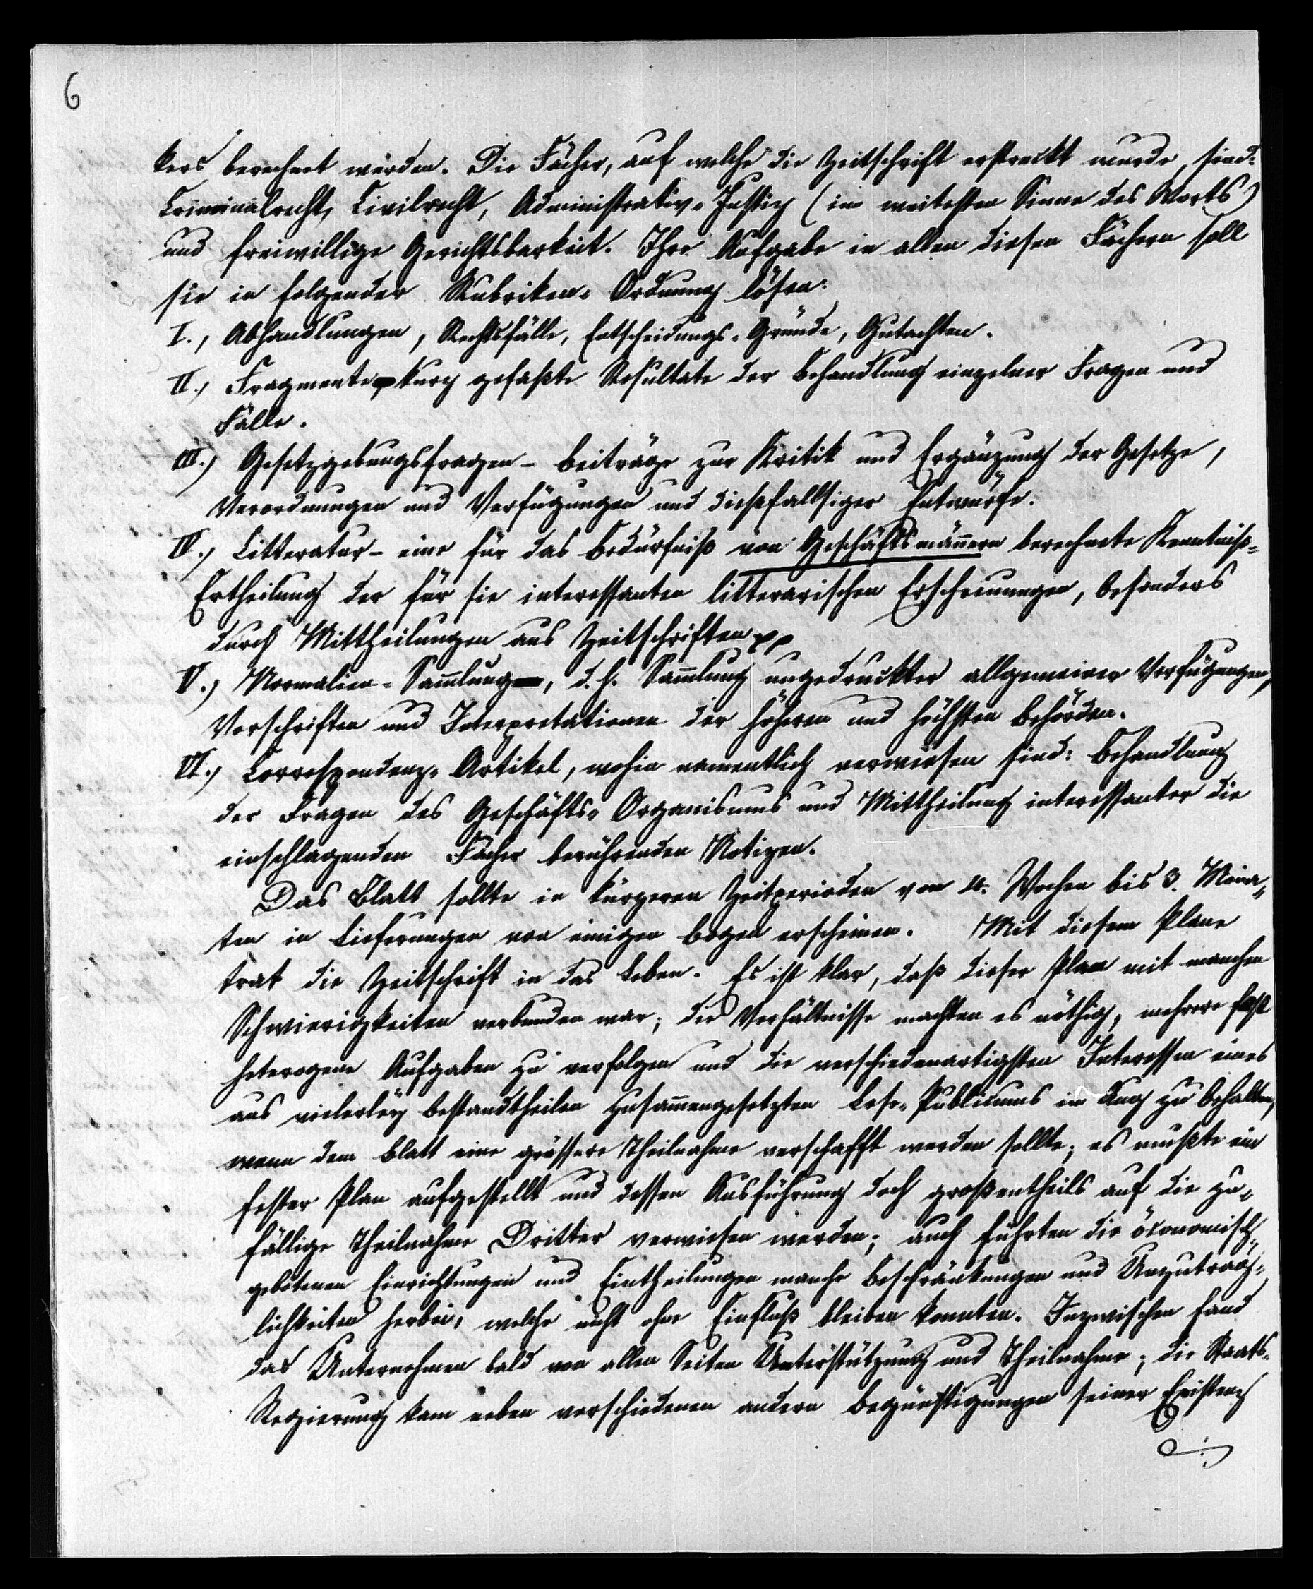 6
kers berechnet würden. Die Fächer, auf welche die Zeitschrift erstreckt wurde, sind:
Criminalrecht, Civilrecht, Administrativ-Justiz (im weitesten Sinne des Worts)
und freiwillige Gerichtsbarkeit. Ihre Aufgabe in allen diesen Fächern soll
sie in folgender Rubriken-Ordnung lösen:
I., Abhandlungen, Rechtsfälle, Entscheidungs-Gründe, Gutachten.
II., Fragmente, kurz gefaßte Resultate der Behandlung einzelner Fragen und
Fälle.
III.) Gesetzgebungsfragen - Beiträge zur Kritik und Ergänzung der Gesetze,
Verordnungen und Verfügungen und dießfallsiger Entwürfe.
IV.) Litteratur - eine für das Bedürfniß von Geschäftsmännern berechnete Kenntniß-
Ertheilung der für sie interessanten litterarischen Erscheinungen, besonders
durch Mittheilungen aus Zeitschriften pp
V.) Normalien-Sammlung, d. h. Sammlung ungedruckter allgemeiner Verfügungen,
Vorschriften und Interpretationen der höheren und höchsten Behörden.
VI.) Correspondenz-Artikel, wohin namentlich verwiesen sind: Behandlung
der Fragen des Geschäfts-Organismus und Mittheilung interessanter die
einschlagenden Fächer berührenden Notizen.
Das Blatt sollte in kürzeren Zeitperioden von 4. Wochen bis 3. Mona-
ten in Lieferungen von einigen Bogen erscheinen. Mit diesem Plane
trat die Zeitschrift in das Leben. Es ist klar, daß dieser Plan mit manchen
Schwierigkeiten verbunden war; die Verhältnisse machten es nöthig, mehrere fast
heterogene Aufgaben zu verfolgen und die verschiedenartigsten Interessen eines
aus vielerley Bestandtheilen zusammengesetzten Lese-Publicums im Aug zu behalten,
wenn dem Blatt eine grössere Theilnahme verschafft werden sollte; es mußte ein
fester Plan aufgestellt und dessen Ausführung doch großentheils auf die zu-
fällige Theilnahme Dritter verwiesen werden; auch führten die öconomisch-
gebotenen Einrichtungen und Eintheilungen manche Beschränkungen und Unzuträg-
lichkeiten herbei, welche nicht ohne Einfluß bleiben konnten. Inzwischen fand
das Unternehmen bald von allen Seiten Unterstützung und Theilnahme; die Staats-
Regierung kam neben verschiedenen andern Begünstigungen seiner Existenz